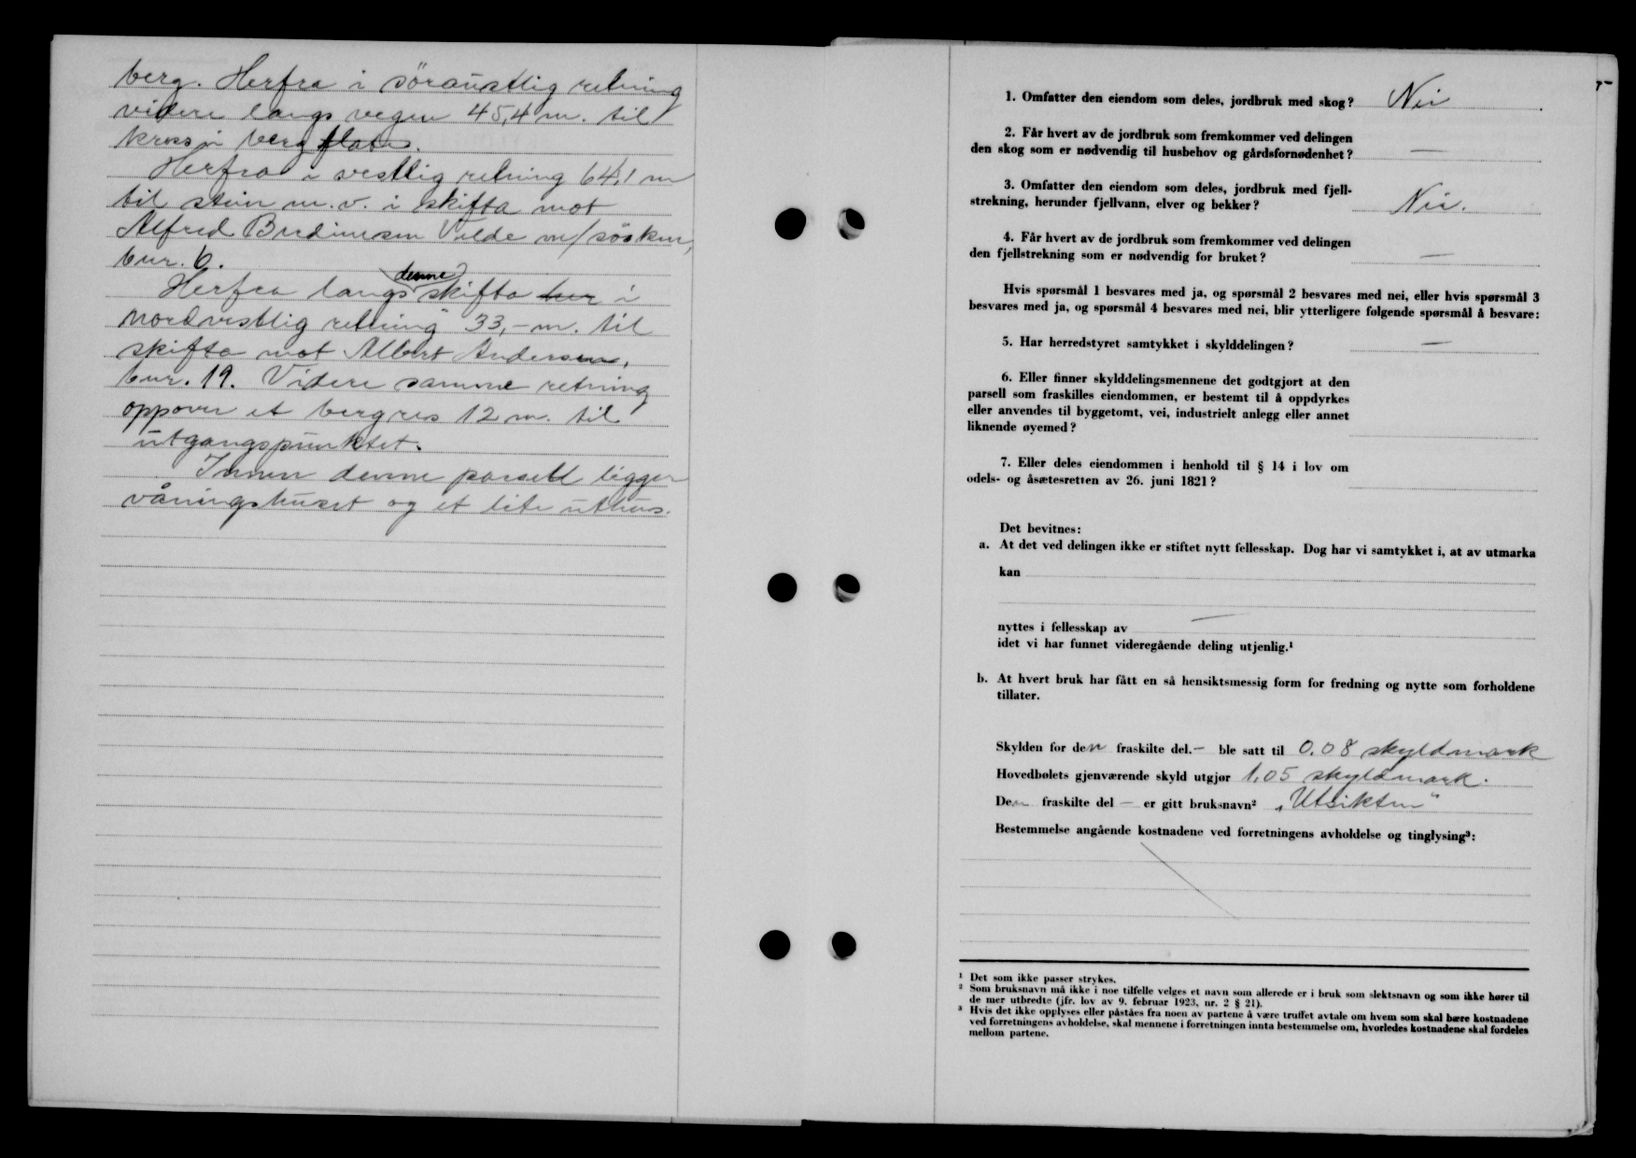 berg. Herfra i søraustlig retning
videre langs vegen 45,4 m. til
kross i berg flate.
Herfra i vestlig retning 64,1 m
til stein m. v. i skifta mot
Alfred Bredinesen Vilde m/søsken,
bnr. 6.
Herfra langs denne skifta her i
nordvestlig retning 33,- m. til
skifta mot Albert Andersen,
bnr. 19. Videre samme retning
oppover et bergres 12 m. til
utgangspunktet.
Innen denne parsell ligger
våningshuset og et lite uthus.
1. Omfatter den eiendom som deles, jordbruk med skog? Nei
2. Får hvert av de jordbruk som fremkommer ved delingen
den skog som er nødvendig til husbehov og gårdsfornødenhet? —
3. Omfatter den eiendom som deles, jordbruk med fjell-
strekning, herunder fjellvann, elver og bekker? Nei.
4. Får hvert av de jordbruk som fremkommer ved delingen
den fjellstrekning som er nødvendig for bruket? —
Hvis spørsmål 1 besvares med ja, og spørsmål 2 besvares med nei, eller hvis spørsmål 3
besvares med ja, og spørsmål 4 besvares med nei, blir ytterligere følgende spørsmål å besvare:
5. Har herredstyret samtykket i skylddelingen? —
6. Eller finner skylddelingsmennene det godtgjort at den
parsell som fraskilles eiendommen, er bestemt til å oppdyrkes
eller anvendes til byggetomt, vei, industrielt anlegg eller annet
liknende øyemed?
7. Eller deles eiendommen i henhold til § 14 i lov om
odels- og åsætesretten av 26. juni 1821?
Det bevitnes:
a. At det ved delingen ikke er stiftet nytt fellesskap. Dog har vi samtykket i, at av utmarka
kan
nyttes i fellesskap av —
idet vi har funnet videregående deling utjenlig.¹
b. At hvert bruk har fått en så hensiktsmessig form for fredning og nytte som forholdene
tillater.
Skylden for den fraskilte del.— ble satt til 0.08 skyldmark
Hovedbølets gjenværende skyld utgjør 1,05 skyldmark.
Den fraskilte del — er gitt bruksnavn² „Utsikten"
Bestemmelse angående kostnadene ved forretningens avholdelse og tinglysing³:
¹ Det som ikke passer strykes.
² Som bruksnavn må ikke i noe tilfelle velges et navn som allerede er i bruk som slektsnavn og som ikke hører til
de mer utbredte (jfr. lov av 9. februar 1923, nr. 2 § 21).
³ Hvis det ikke opplyses eller påståes fra noen av partene å være truffet avtale om hvem som skal bære kostnadene
ved forretningens avholdelse, skal mennene i forretningen innta bestemmelse om, hvorledes kostnadene skal fordeles
mellom partene.